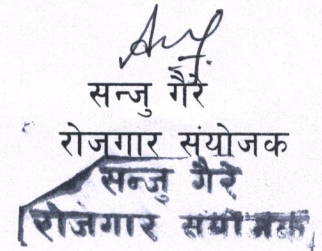 सन्जु गैरे
रोजगार संयोजक
सन्जु गैरे
रोजगार संयोजक